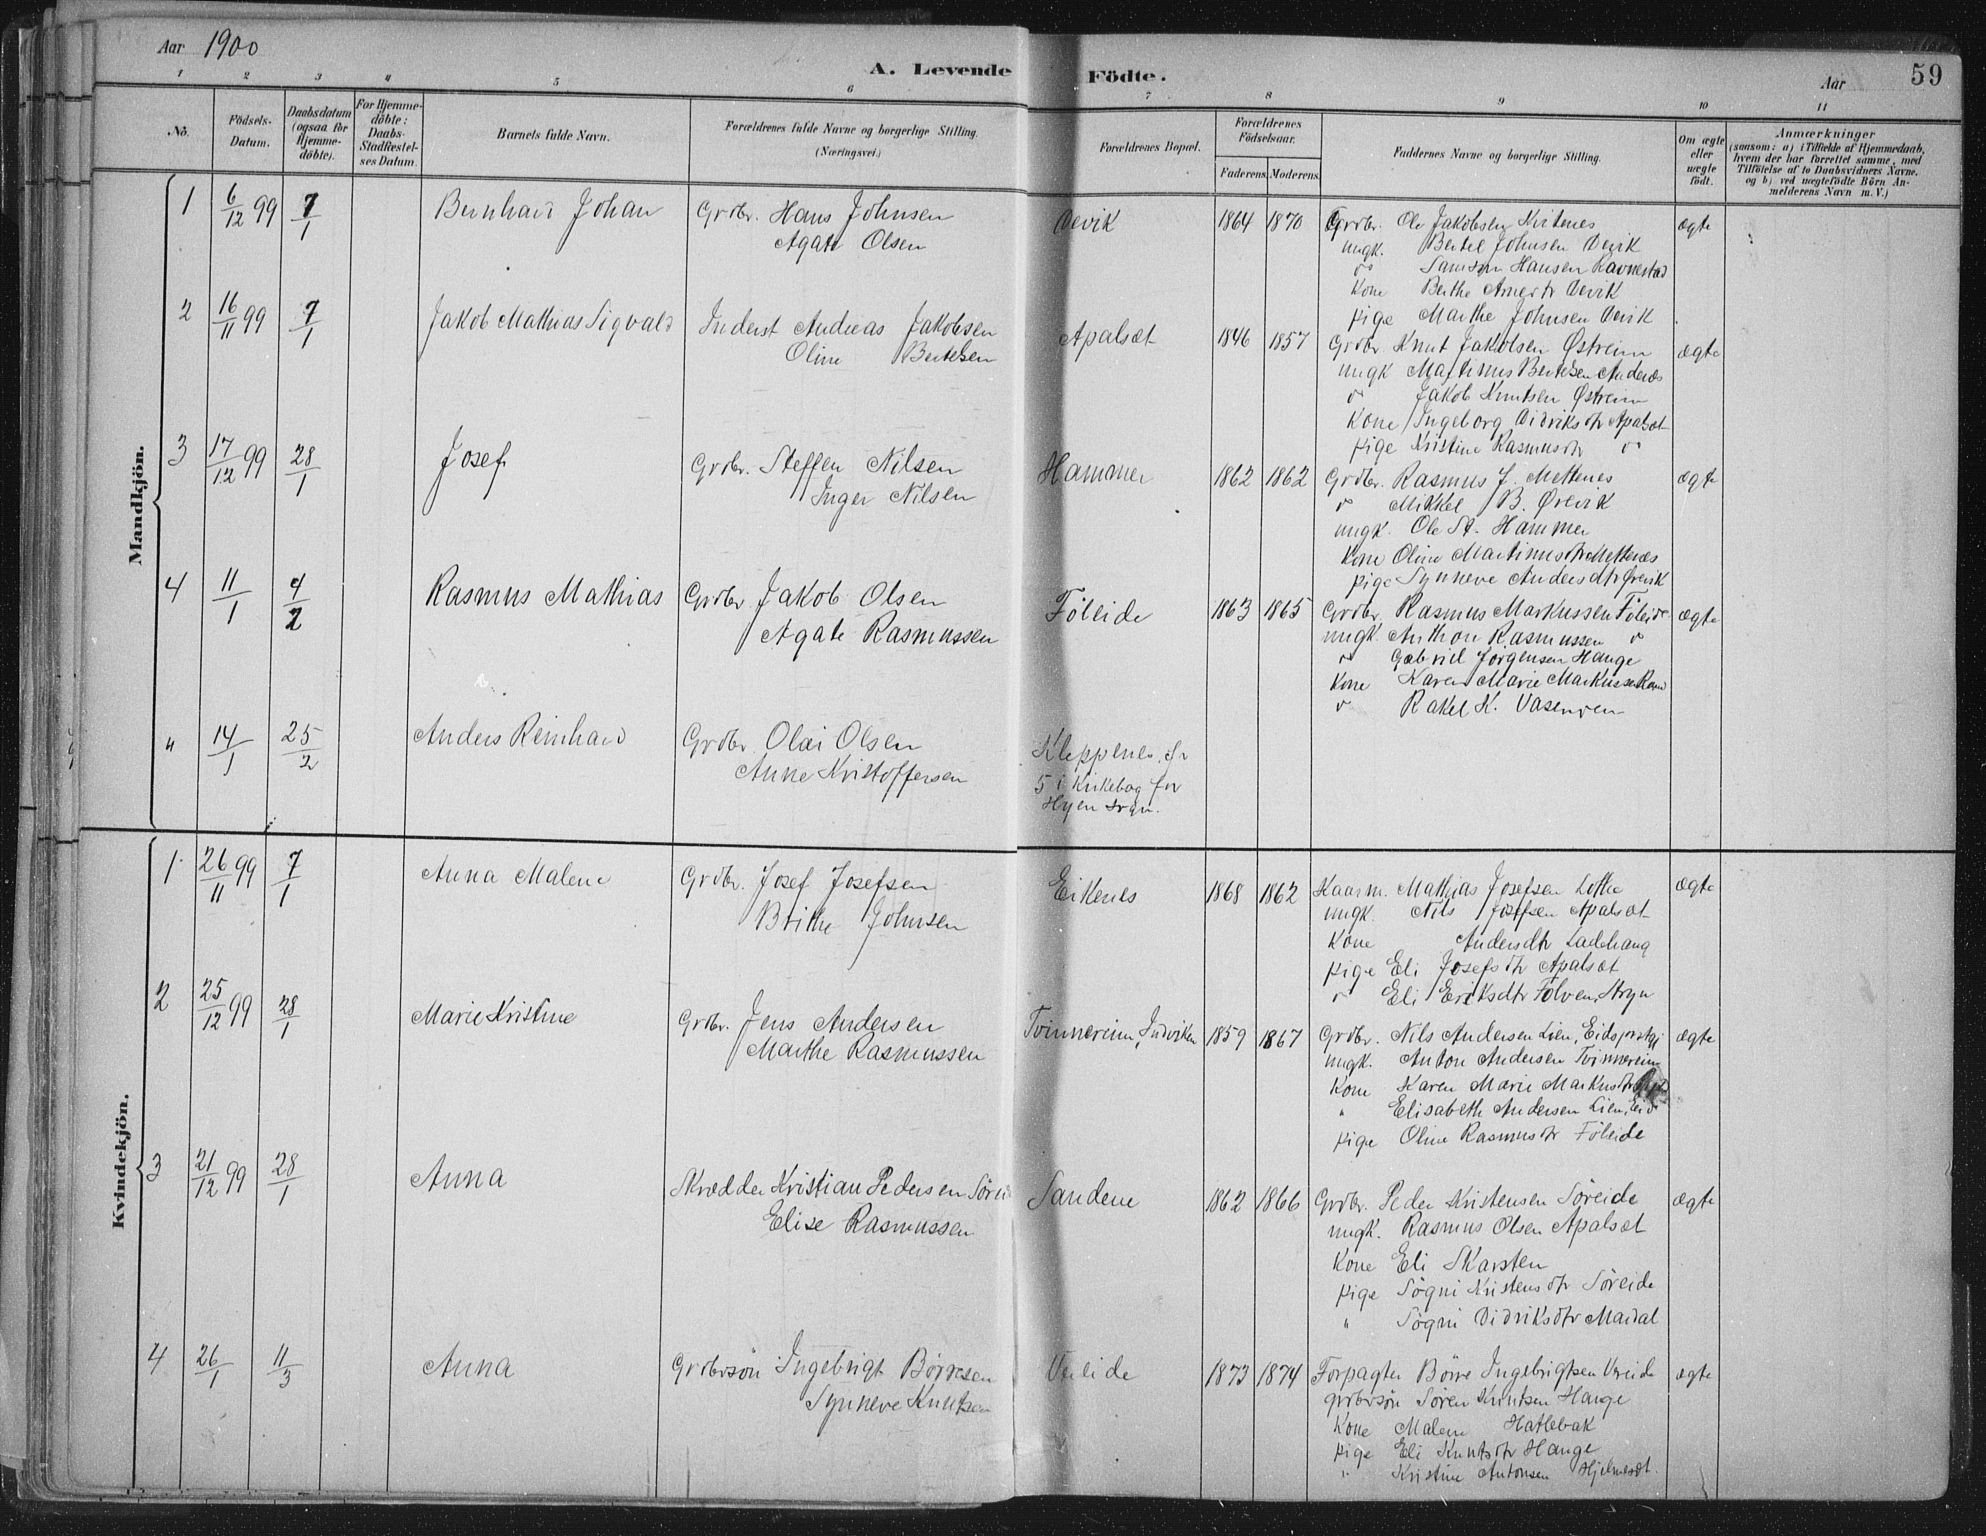 Aar 1900
A. Levende Födte.
Aar
59
1 2 3 4 5 6 7 8 9 10 11
No.
Födsels-
Datum.
Daabsdatum
(ogsaa for
Hjemme-
döbte).
For Hjemme-
döbte:
Daabs-
Stadfæstel-
ses Datum.
Barnets fulde Navn.
Forældrenes fulde Navne og borgerlige Stilling.
(Næringsvei.)
Forældrenes Bopæl.
Forældrenes
Födselsaar.
Faderens. Moderens.
Faddernes Navne og borgerlige Stilling.
Om ægte
eller
uægte
født.
Anmærkninger
(saasom: a) i Tilfælde af Hjemmedaab,
hvem der har forrettet samme, med
Tilföielse af to Daabsvidners Navne,
og b) ved uægtefödte Börn An-
melderens Navn m. V.)
Mandkjön.
1 6/12 99 7/1 Bernhard Johan Grdbr. Hans Johnsen Devik 1864 1870 Grdbr. Ole Jakobsen Kvitenes ægte
Agate Olsen ungk. Bertel Johnsen Devik
do Samson Hansen Ravnestad
Kone Berthe Devik
pige Marthe Johnsen Devik
2 16/11 99 7/1 Jakob Mathias Sigvald Inderst Andreas Jakobsen Apalsæt 1846 1857 Grdbr. Knut Jakobsen Østreim ægte
Oline Bertelsen ungk Martinus Bertelsen Andenæs
do Jakob Knutsen Østreim
Kone Ingeborg Didriksdtr Apalsæt
pige Kristine Rasmusdtr do
3 17/12 99 28/1 Josef Grdbr. Steffen Nilsen Hammer 1862 1862 Grdbr. Rasmus J. Mettenes ægte
Inger Nilsen do Mikkel B. Ørevik
ungk. Ole St. Hammer
Kone Oline Martinusdtr Mettenæs
pige Synneve Andersdtr Ørevik
4 11/1 4/2 Rasmus Mathias Grdbr Jakob Olsen Føleide 1863 1865 Grdbr. Rasmus Markussen Føleide ægte
Agate Rasmussen ungk. Anthon Rasmussen do
do Gabriel Jørgensen Hauge
Kone Karen Marie Markussen
do Rakel K. Vasenden
" 14/1 25/2 Anders Reinhard Grdbr. Olai Olsen Kleppenes, fr
Anne Kristoffersen 5 i Kirkebog for
Hyen sogn.
Kvindekjön.
1 26/11 99 7/1 Anna Malene Grdbr. Josef Josefsen Eikenes 1868 1862 Kaarm. Mathias Josefsen Lothe ægte
Brithe Johnsen ungk. Nils Josefsen Apalsæt
Kone Andersdtr Ladehaug
pige Eli Josefsdtr Apalsæt
do Eli Eriksdtr Folven, Stryn
2 25/12 99 28/1 Marie Kristine Grdbr. Jens Andersen Tvinnereim, Indviken 1859 1867 Grdbr. Nils Andersen Lien, Eids ægte
Marthe Rasmussen ungk. Anton Andersen Tvinnereim
Kone Karen Marie Markusdtr
" Elisabeth Andersen Lien, Eid
pige Oline Rasmusdtr Føleide
3 21/12 99 28/1 Anna Skrædder Kristian Pedersen Søreide Sandene 1862 1866 Grdbr. Peder Kristensen Søreide ægte
Elise Rasmussen ungk. Rasmus Olsen Apalsæt
Kone Eli Skarsten
pige Søgni Kristensdtr Søreide
" Søgni Didriksdtr Mardal
4 26/1 11/3 Anna Grdbrsøn Ingebrigt Børresen Vereide 1873 1874 Forpagter Børre Ingebrigtsen Vereide ægte
Synneve Knutsen grdbrsøn Søren Knutsen Hauge
Kone Malene Hatlebak
pige Eli Knutsdtr Hauge
" Kristine Antonsen Hjelmesæt.